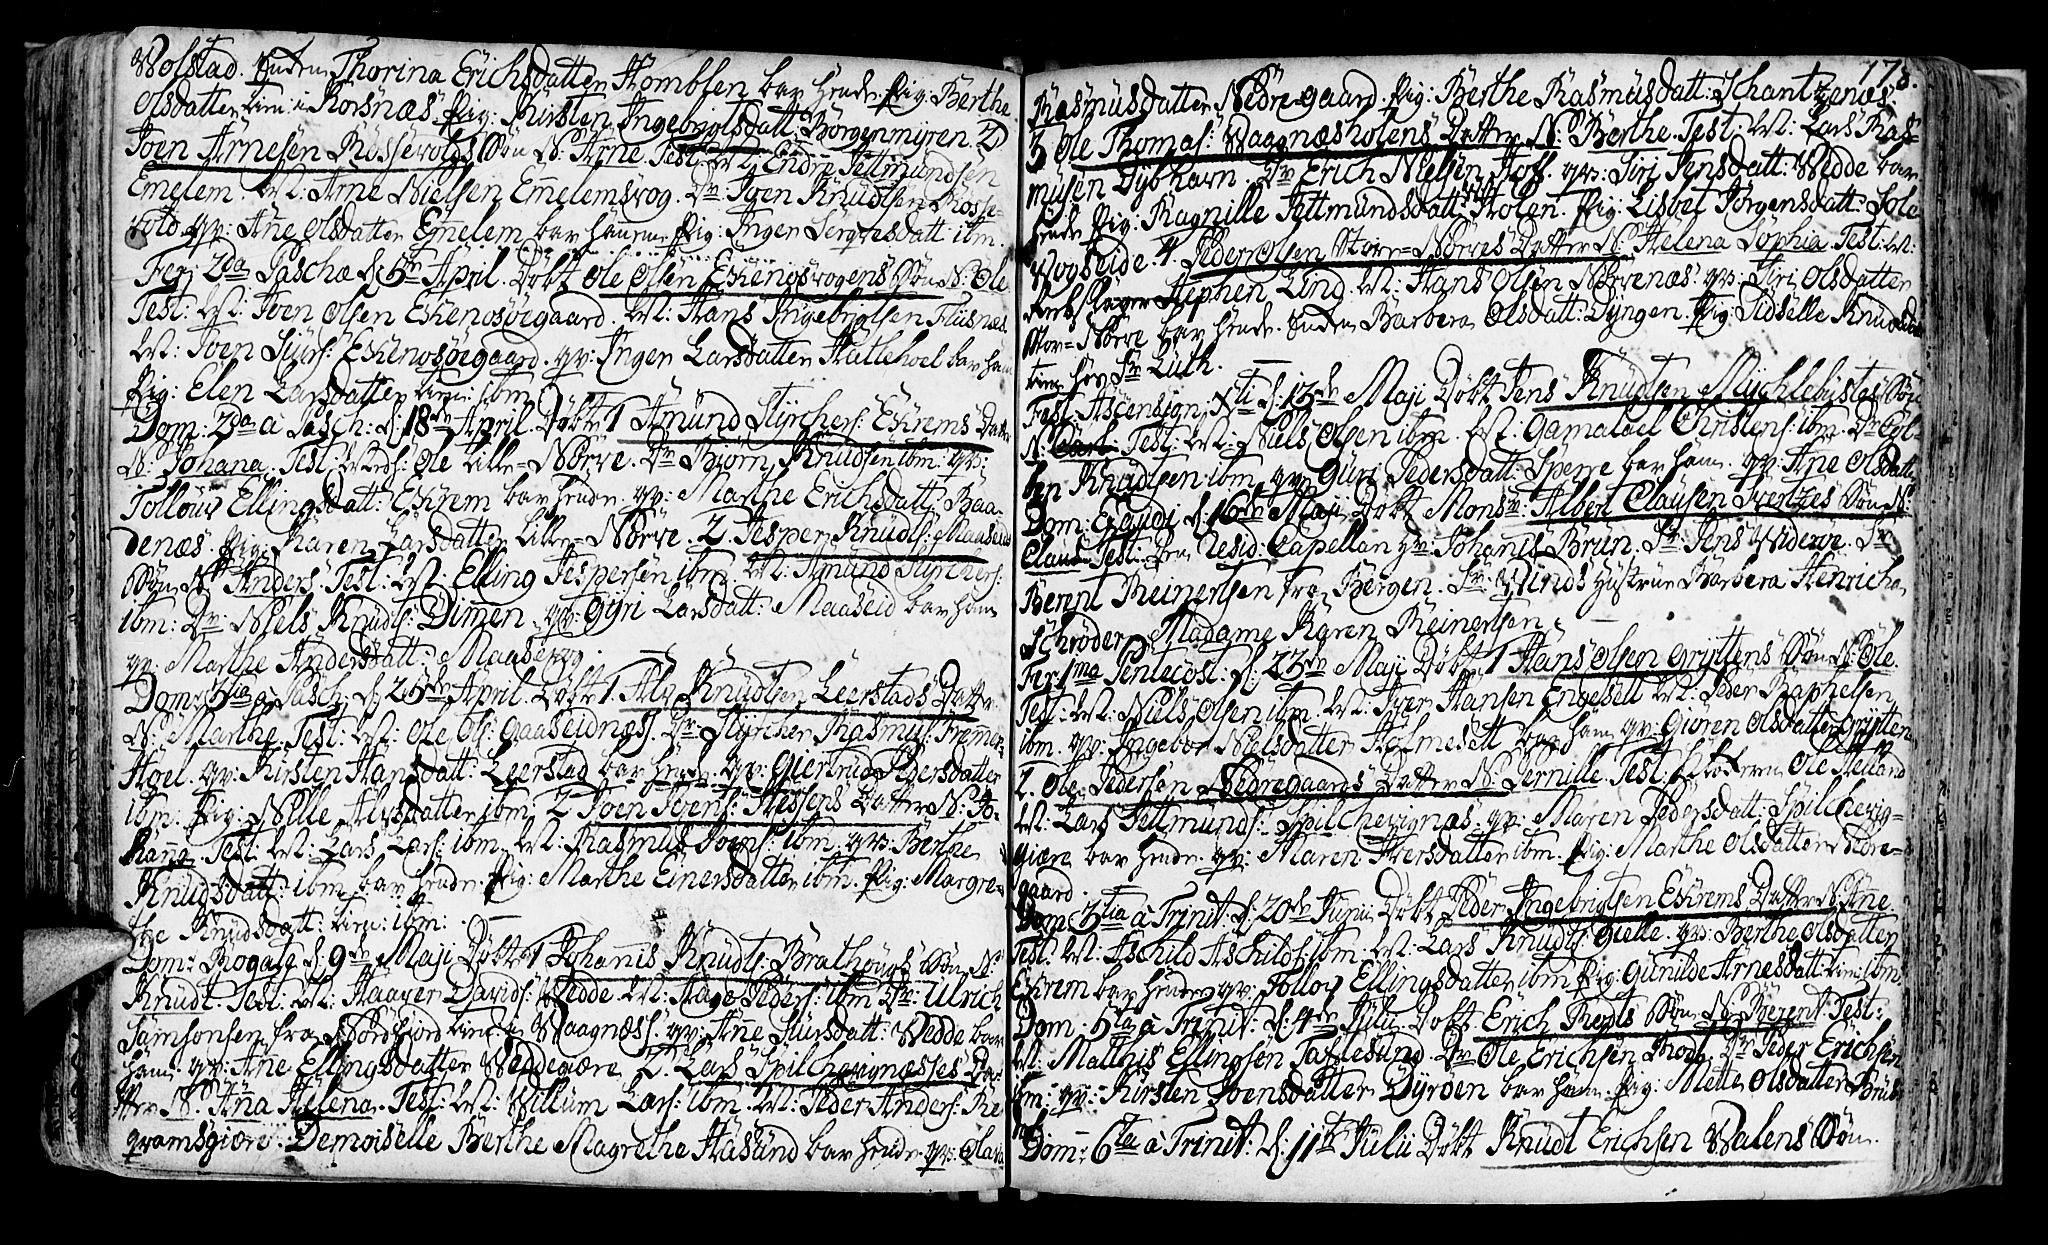 Wolstad. Enken Thorina Erichsdatter Humblen bar hende. Pig: Berthe
Olsdatter tien: i Korsnæs. Pig: Kirsten Ingebrigtsdatt: Borgenmyren. 2
Joen Arnesen Røssevolds Søn N: Arne. Test: Endre Pettmundsen
Emelem. W: Arne Nielsen Emelemsvog. Dr Joen Knudsen Rosse-
vold. qv: Ane Olsdatter Emelem bar hannem. Pig: Inger Sergvesdatt: ibm.
Fer: 2da Paschæ d: 5te April. Døbt Ole Olsen Eskenosvogens Søn N: Ole
Test: W: Iver Olsen Eskenosøegaard. W: Hans Ingebrigtsen Flusnæs.
W: Joen Siurs: Eskenosøegaard. qv: Inger Larsdatter Hatlehoel bar ham
Pig: Elen Larsdatter tien: ibm.
Dom: 2da a Pasch: d: 18de April. Døbt 1 Amund Styrchers: Eskrems Datter
N: Johana. Test: Ole Lille-Nørve. Dr Biørn Knudsen ibm. qv:
Tollou Ellingsdatt: Eskrem bar hende. qv: Marthe Erichsdatt: Baa-
denæs. Pig: Karen Larsdatter Lille-Nørve. 2. Jesper Knuds: Maaseids
Søn N: Anders. Test: W: Elling Jespersen ibm. W: Amund Styrchers:
ibm: Dr Niels Knuds: Dimen. qv: Gyri Larsdatt: Maaseid bar ham
qv: Marthe Andersdatt: Maasevog.
Dom: 3tia a Pasch: d: 25de April. Døbt 1. Alg Knudsen Leerstads Datter
N: Marthe. Test: W: Ole Ols: Gaaseidnæs. Dr: Styrcher Rasmus: Fremer-
Hoel. qv: Kirsten Hansdatt: Leerstad bar hende. qv: Giertrud Pedersdatter
ibm. Pig: Nille Alvsdatter ibm. 2 Joen Joens: Hessens Datter N: Jo-
hana. Test: W: Lars Lars: ibm. W: Rasmus Joens: ibm. qv: Berthe
Knudsdatt: ibm. bar hende. Pig: Marthe Einersdatter ibm. Pig: Margre-
the Knudsdatt: tien: ibm:
Dom: Rogate d: 9de Maji Døbt 1 Johanis Knuds: Brathougs Søn N:
Knudt. Test: W: Haaver Davids: Wedde. W: Hage Peders: ibm. Dr: Ulrich
Samsonsen fra Nordfiord tien: i Waagnæss. qv: Anne Siursdatt: Wedde bar
ham. qv: Ane Ellingsdatter Weddegiære. 2. Lars Spilchevignæsses Dat-
ter N: Ana Helena. Test: W: Willum Lars: ibm. W: Peder Anders: Re
gramsgiære. Demoiselle Berthe Magrethe Hasund bar hende. qv: Olava
178.
Rasmusdatter Nedre-gaard. Pig: Berthe Rasmusdatt: Schantzenæs.
3 Ole Thomas: Waagnæsholens Datter N: Berthe. Test: W: Lars Ras-
musen Dybhavn. Dr Erich Nielsen Hoff. qv: Siri Jensdatt: Wedde bar
hende. Pig: Ragnille Pettmundsdatt: Holen. Pig: Lisbet Jørgensdatt: Sole
Vogseide. 4. Peder Olsen Store-Nørves Datter N: Helena Sophia. Test: W:
Rebslager Stephen Lind. W: Hans Olsen Nørvenæs. qv: Siri Olsdatter
Stor-Nørve bar hende. Enken Barbera Olsdatt: Dyngen. Pig: Sidselle Knudsd:
tien: hos Sr Luth.
Fest: Ascension: Xti d: 13de Maji Døbt Jens Knudsen Mychlebusts Søn
N: Carl. Test: W: Niels Olsen ibm. W: Gamalael Christens: ibm. Dr Esb-
ben Knudsen ibm. qv: Guri Pedersdatt: Sperre bar ham. qv: Ane Olsdatt:
Dom: Exaudi d: 16de Maji Døbt Monsr: Albert Clausen Svertzes Søn N:
Claus. Test: Hr. Resid: Capellan Hr: Johanis Brun. Sr Jens Widerøe. Sr
Berent Reinertsen fra Bergen. Sr: Winds Hustrue Barbera Henricha
Schrøder. Madame Karen Reinertsen.
Fer: 1ma Pentecost: d: 23de Maji Døbt 1 Hans Olsen Gryttens Søn N: Ole.
Test: W: Niels Olsen ibm. W: Iver Hansen Engesett W: Peder Raphelsen
ibm. qv: Ingebor Nielsdatter Holmesett bar ham. qv: Giøren Olsdatter Grytten
2. Ole Pedersen Nedregaards Datter N: Pernille. Test: Ole Helland
W: Lars Pettmunds: Spilchevignæs. qv: Maren Pedersdatt: Spilchevig-
giære bar hende. qv: Maren Iversdatter ibm. Pig: Marthe Olsdatter Nedre-
gaard.
Dom: 3tia a Trinit: d: 20de Junii Døbt Peder Ingebrigtsen Eskrems Datter N: Ane.
Test: W: Aschild Aschilds: ibm. W: Lars Knuds: Gielle. qv: Berthe Olsdatter
Eskrem bar hende. qv: Tollou Ellingsdatter ibm. Pig: Gunilde Arnesdatt: tien: ibm.
Dom: 5ta a Trinit: d: 4de Julii Døbt Erich Rhots Søn N: Berent. Test:
W: Matthis Ellingsen Taflesund. Dr Ole Erichsen Rhot. Dr Peder Erichsen
ibm: qv: Kirsten Joensdatter Dyrøen bar ham. Pig: Mette Olsdatter Brus
Dom: 6ta a Trinit: d: 11te Julii Døbt Knudt Erichsen Walens Søn.